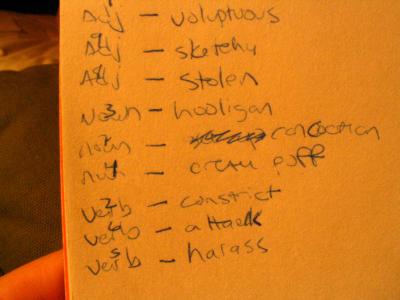 Adj - voluptuous
Adj - sketchy
Adj - stolen
Noun - hooligan
noun - concoction
nun - cream puff
verb - constrict
verb - attack
verb - harass